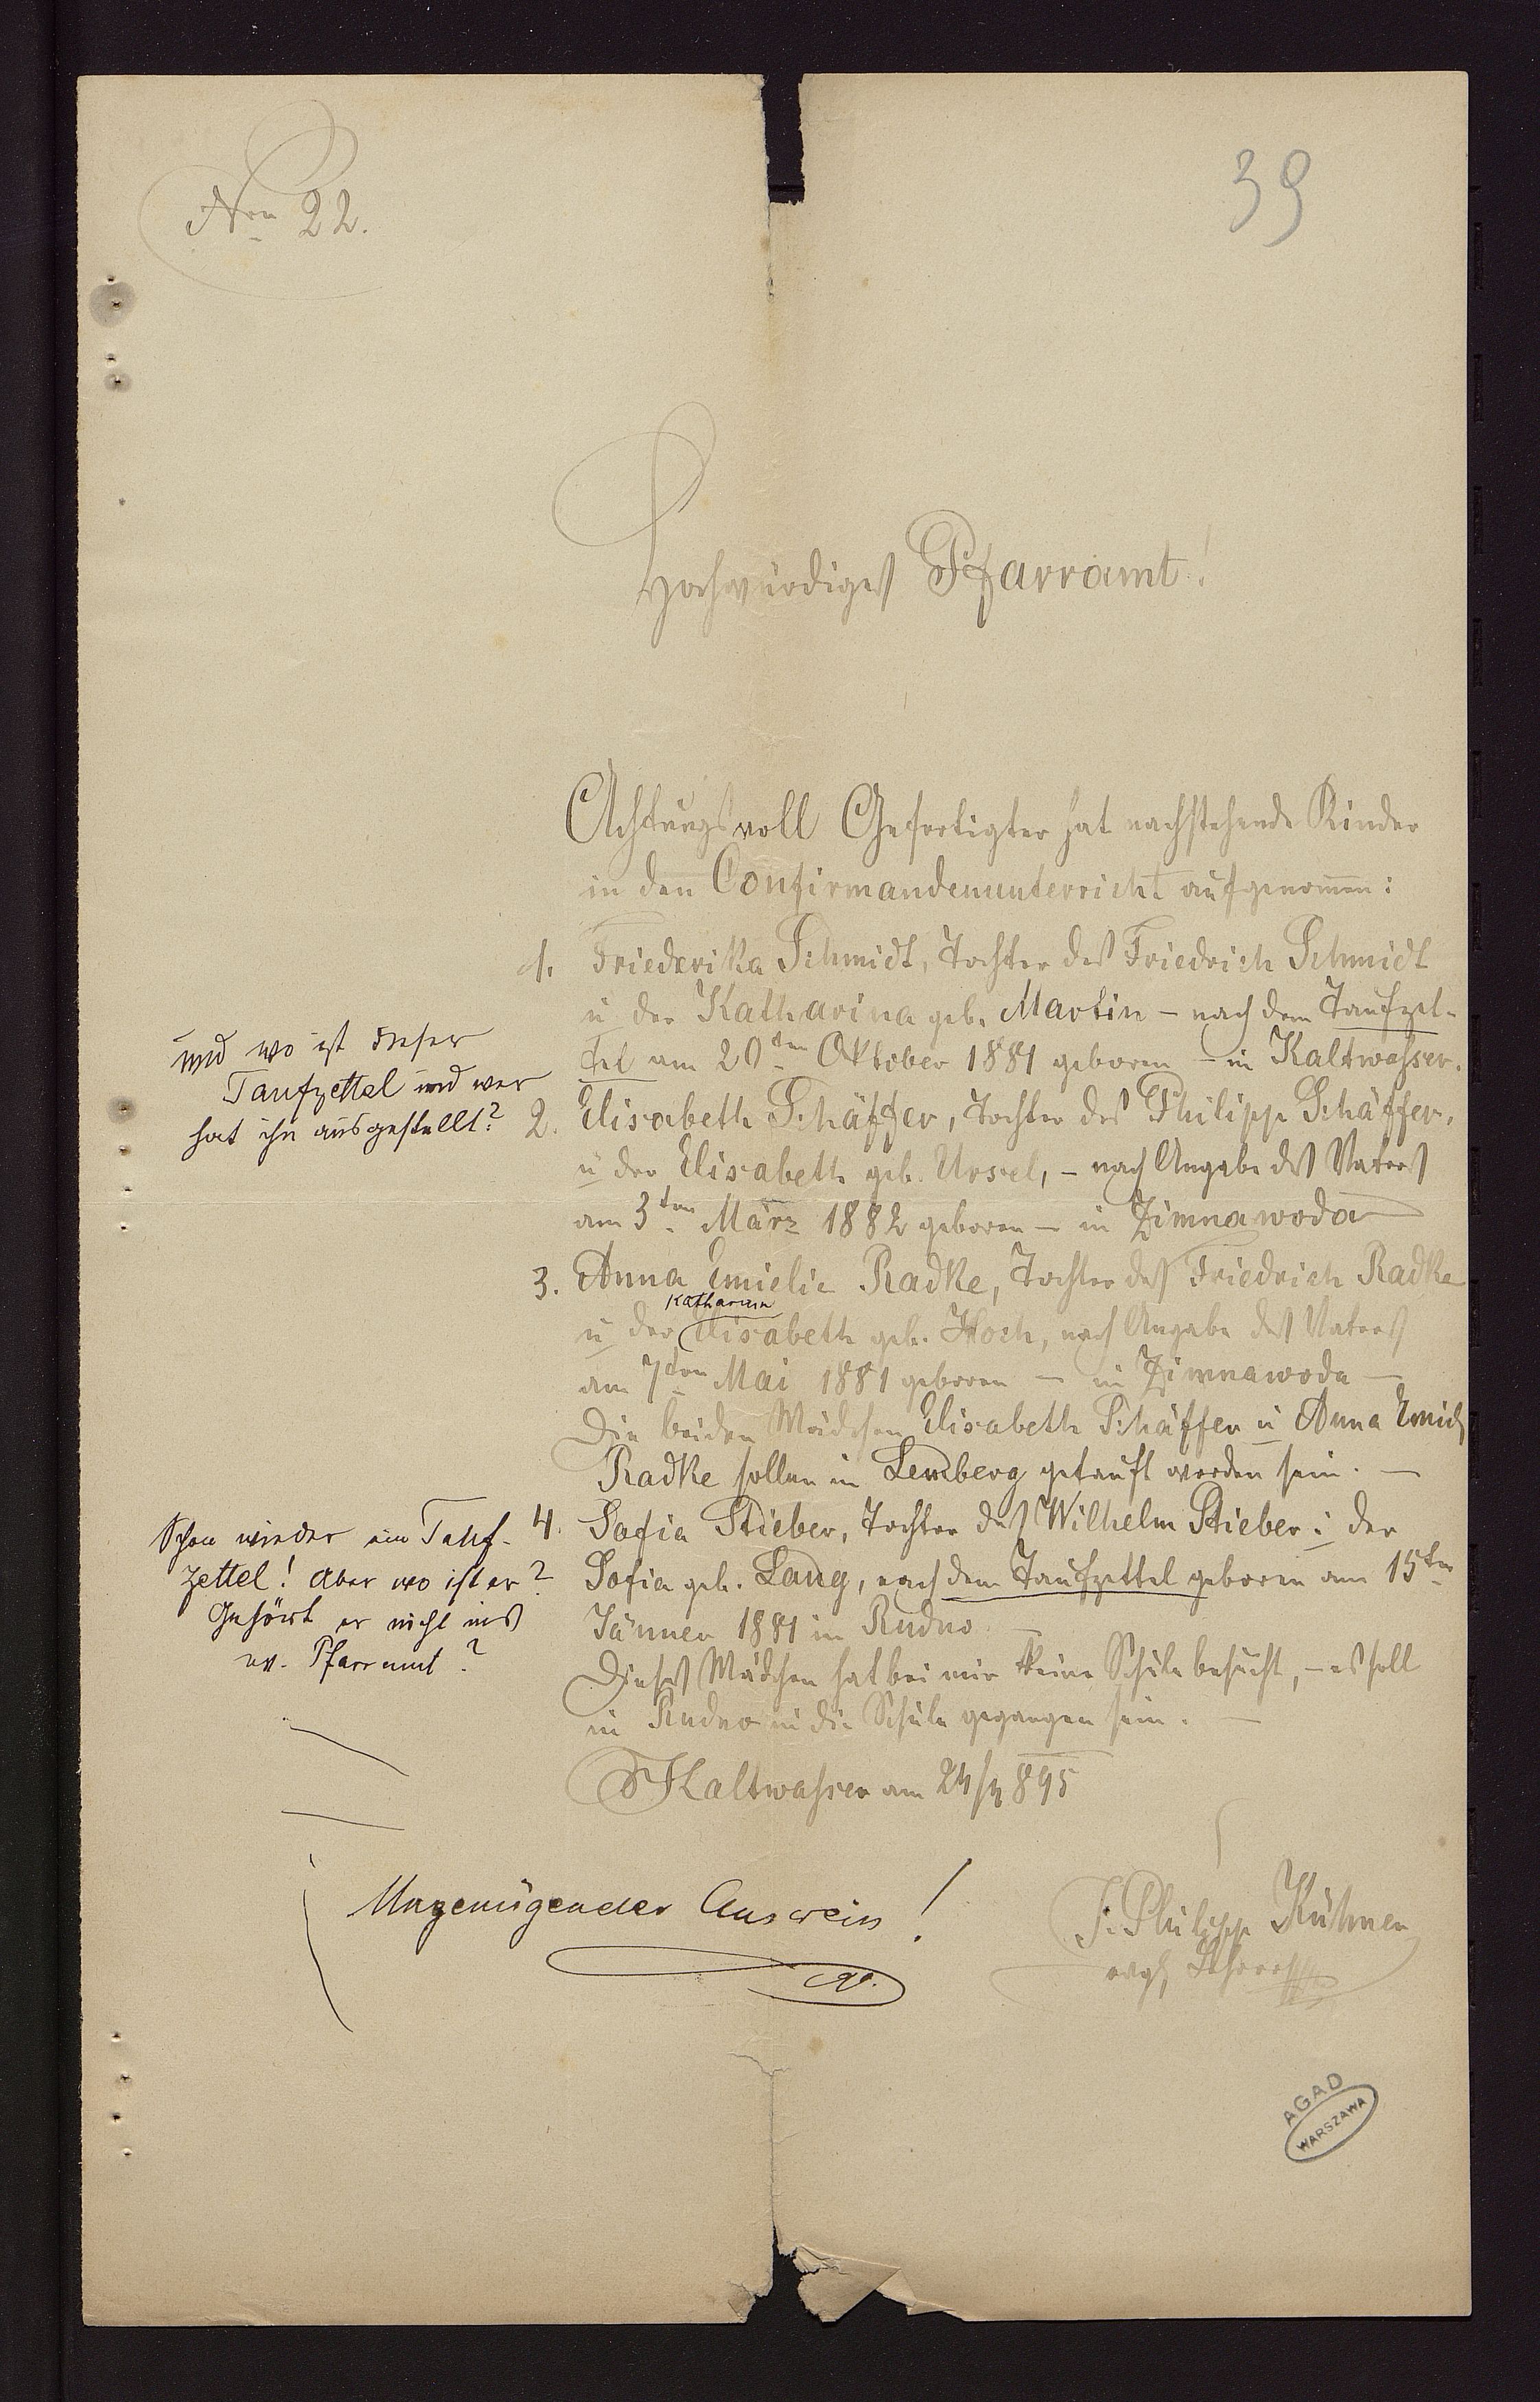 Nro 22.
39
Hochwürdiges Pfarramt!
Achtungsvoll Gefertigter hat nachstehende Kinder
in den Confirmandenunterricht aufgenomen:
1. Friederika Schmidt, Tochter des Friedrich Schmidt
u der Katharina geb. Martin – nach dem Taufzet-
tel am 20ten Oktober 1881 geboren – in Kaltwasser.
und wo ist dieser
Taufzettel und wer
hat ihn ausgestellt?
2. Elisabeth Schäffer, Tochter des Philipp Schäffer,
u der Elisabeth geb. Ursel, – nach Angabe des Vaters
am 3ten März 1882 geboren – in Zimnawoda
3. Anna Emielie Radke, Tochter des Friedrich Radke
Katharina
u der Elisabeth geb. Hoch, nach Angabe des Vaters
am 7ten Mai 1881 geboren – in Zimnawoda –
Die beiden Mädchen Elisabeth Schäffer u Anna Emielie
Radke sollen in Lemberg getauft worden sein. –
4. Sofia Stieber, Tochter des Wilhelm Stieber u der
Sofia geb. Lang, nach dem Taufzettel geboren am 15ten
Jänner 1881 in Rudno. –
Dieses Mädchen hat bei mir keine Schule besucht, – es soll
in Rudno in die Schule gegangen sein. –
Schon wieder ein Tauf-
zettel! Aber wo ist er?
Gehört er nicht ins
ev. Pfarramt?
Kaltwasser am 24/4 895
Ungenügender Ausweis!
J. Philipp Kühner
evgl. Lehrer
AGAD
WARSZAWA